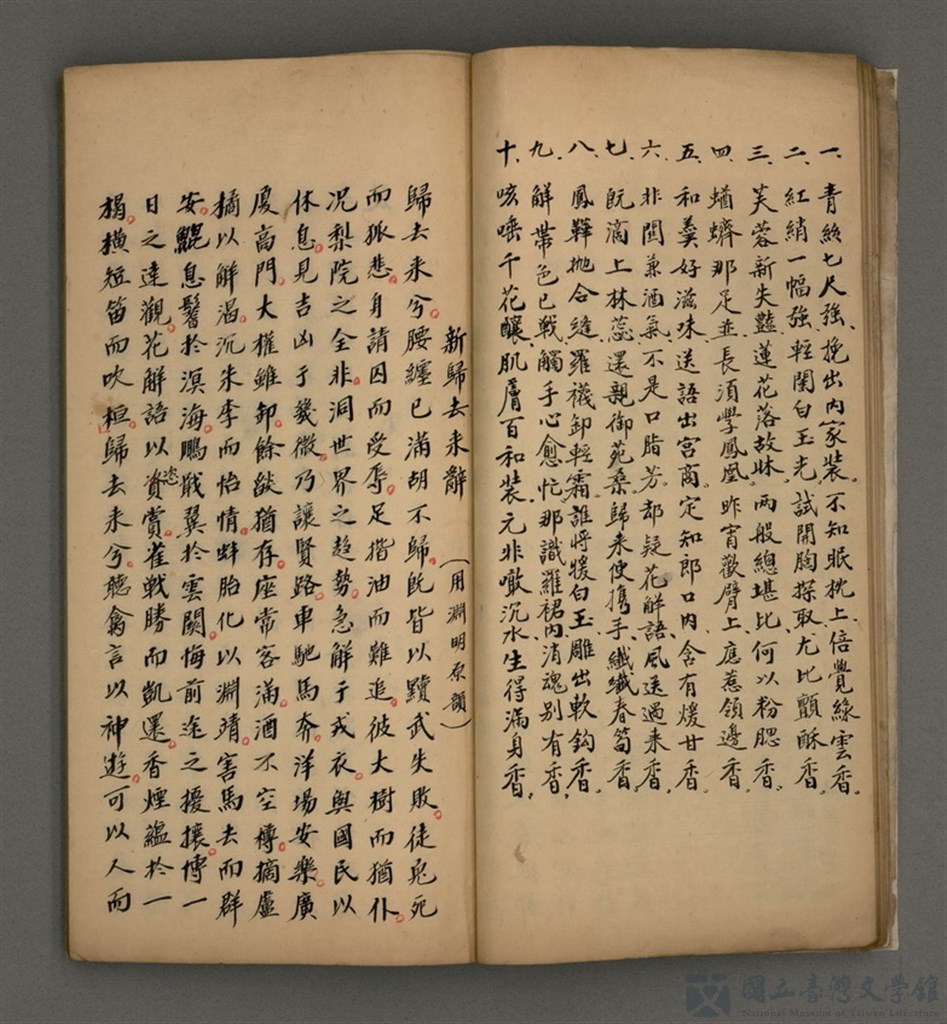 一、青絲七尺強、挽出內家裝。不知眠枕上、倍覺綠雲香。
二、紅綃一幅強、輕闌白玉光。試開胸探取、尤比顫酥香。
三、芙蓉新失豔、蓮花落故妝。兩般總堪比、何以粉腮香。
四、蝤蠐那足並、長須學鳳凰。昨宵歡臂上、應惹領邊香。
五、和羹好滋味、送語出宮商。定知郎口內、含有煖甘香。
六、非関兼酒氣、不是口脂芳。却疑花解語、風送過来香。
七、旣滴上林蕊、還親御苑桑。歸来便携手、纖纖春筍香。
八、鳳鞾抛合縫、羅襪卸輕霜。誰將煖白玉、雕出軟鈎香。
九、解帶色已戰、觸手心愈忙。那識羅裙內、消魂別有香。
十、咳唾千花釀、肌膚百和裝。元非噉沉水、生得滿身香。
新歸去来辭 (用淵明原韻)
歸去来兮。腰纏已滿胡不歸。旣皆以黷武失敗。徒兎死
而狐悲。身請囚而受辱。足揩油而難追。彼大樹而猶仆。
况梨院之全非。洞世界之趋勢。急解于戎衣。與國民以
休息。見吉凶于幾微。乃讓賢路。車馳馬奔。洋場安樂。廣
廈高門。大權雖卸。餘燄猶存。座常客滿。酒不空樽。摘盧
橘以解渴。沉朱李而怡情。蚌胎化以淵靖。害馬去而群
安。鯤息鬐於溟海。鵬戢翼於雲關。悔前途之擾攘。博一
日之達觀。花解語以恣賞。雀戰勝而凱還。香煙蘊於一
榻。橫短笛而吹桓。歸去来兮。聽禽言以神遊。可以人而
國立臺灣文學館
National Museum of Taiwan Literature